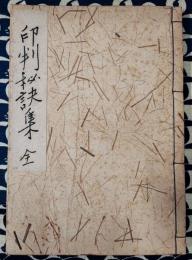 印判秘訣集 全